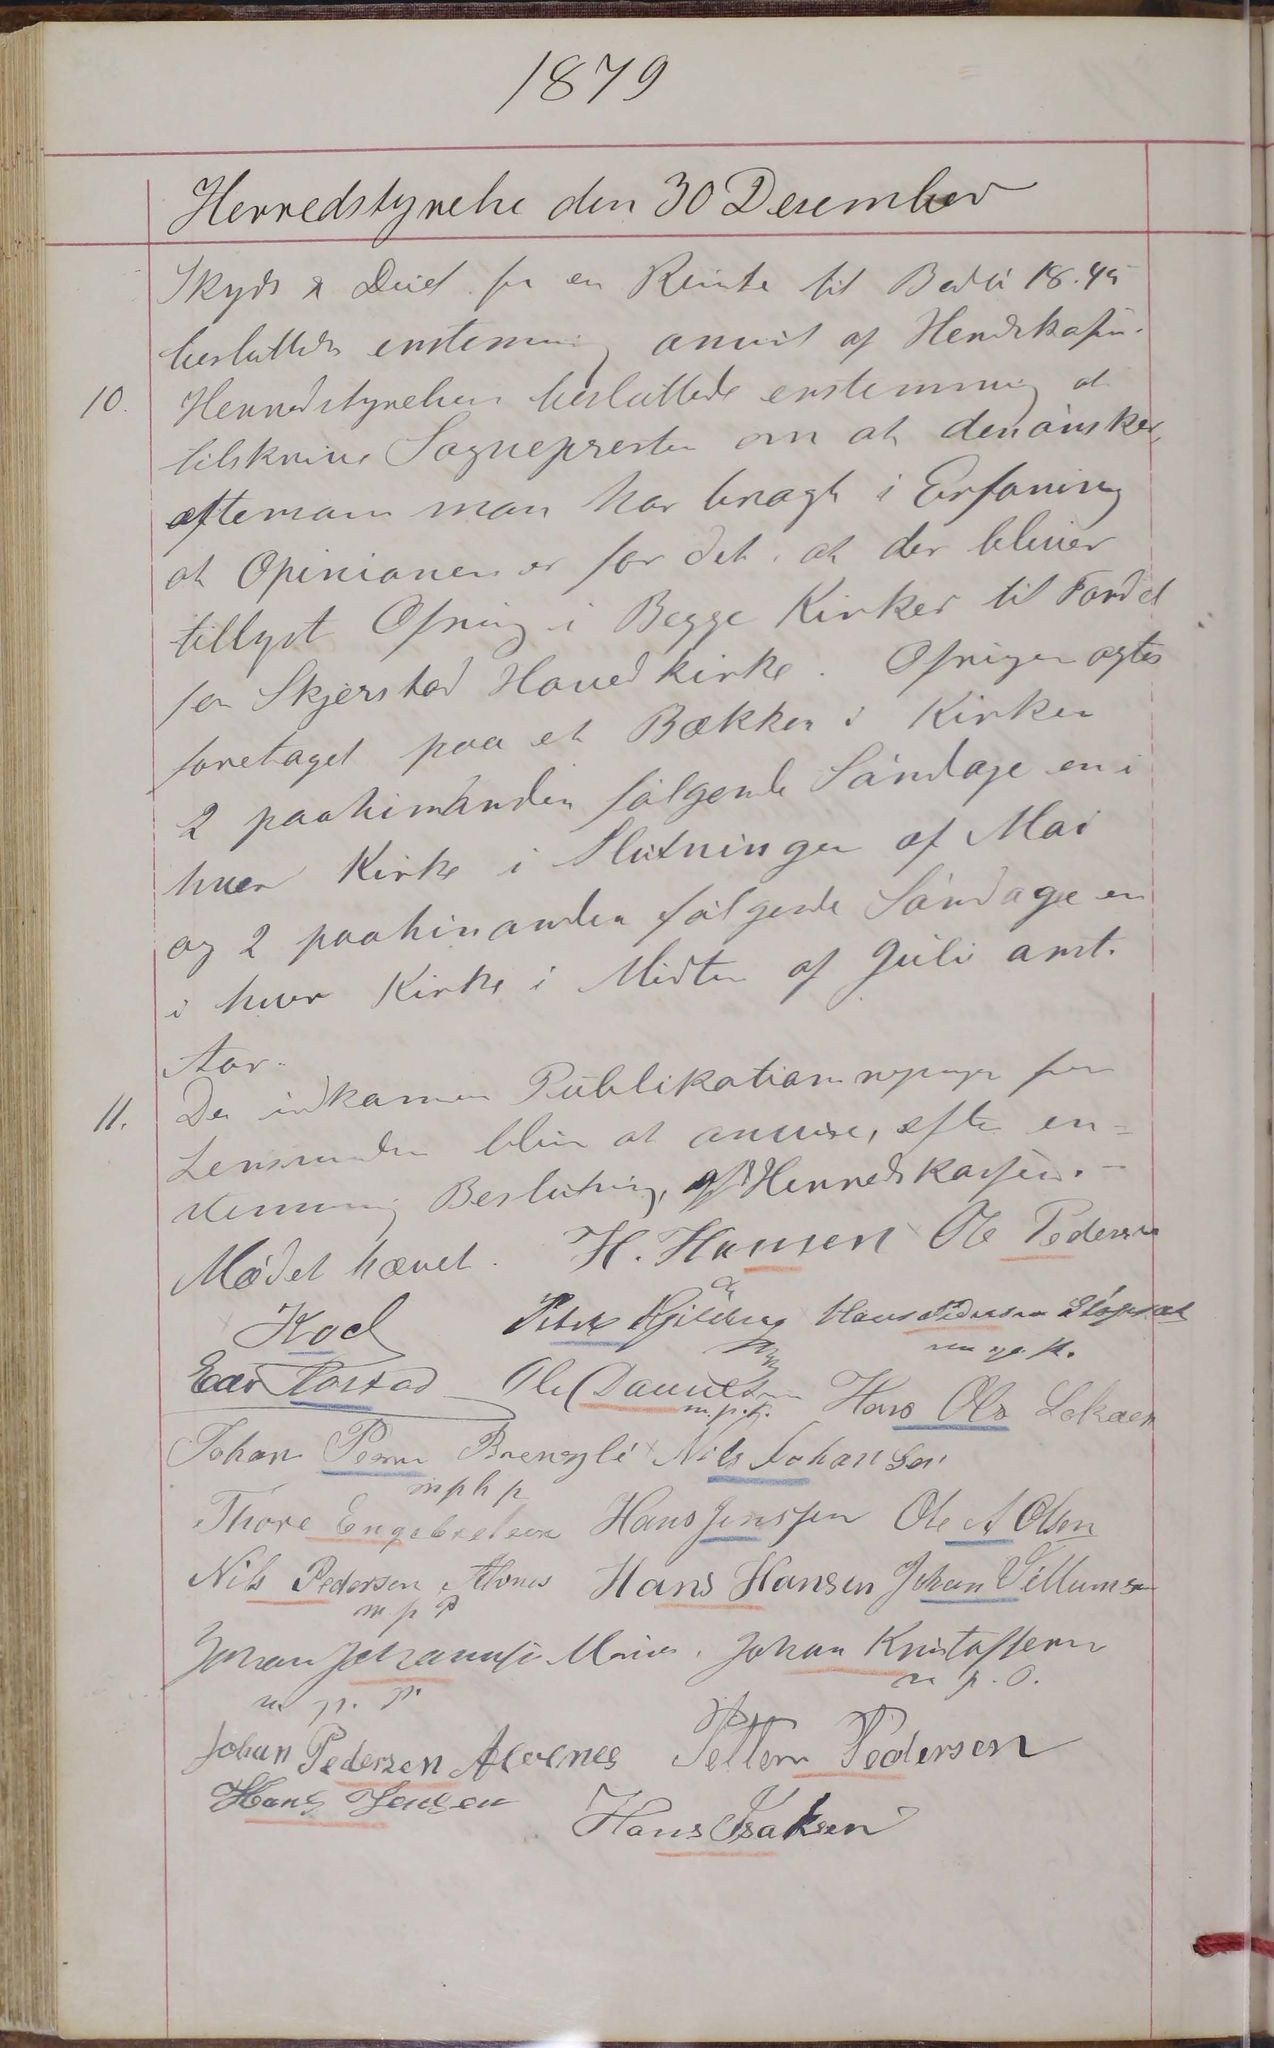 1879
Herredstyrelse den 30 Desember
Skyds & Diet for en Reise til Bodø 18.45
besluttedes enstemmig anvist af Herredskassen.
10. Herredstyrelsen besluttede enstemmig at
tilskrive Sognepresten om at den ønsker,
eftersom man har bragt i Erfaring
at Opinionen er for det, at der bliver
tillyst Ofring i Begge Kirker til Fordel
for Skjerstad Hovedkirke. Ofringen agtes
foretaget paa et Bækken i Kirken
2 paahinanden følgende Søndage en i
hver Kirke i Slutningen af Mai
og 2 paahinanden følgende Søndage en
i hver Kirke i Midten af Juli anst.
Aar.
11. De indkomne Publikations for
Lensmanden blev at anvise, efter en=
stemmig Beslutning, af Herredskassen. -
Mødet hævet. H. Hansen Ole Pedersen
Kod Peter Hans Pedersen
m p. p.
Ole Danielsen Hans Ols
m. p. p.
Johan Nils Johansen
m p h p
Thore Engebretsen Hans Jenssen Ole A Olsen
Nils Pedersen Alvnes Hans Hansen Johan Villumsen
m p P
Johan Johannes Johan Kristoffersen
m p. p. m p. P.
Johan Pedersen Alvenes Petter Pedersen
Hans Jensen Hans Isaksen